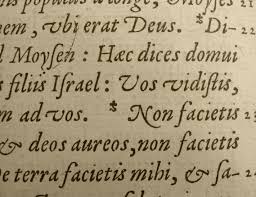 populus a longe, Moyſes 21
nem, vbi erat Deus. *Di- 22
l Moyſen : Hæc dices domui
s filiis Iſrael : Vos vidiſtis,
m ad vos. * Non facietis 23
& deos aureos, non facietis
De terra facietis mihi, & ſa- 24